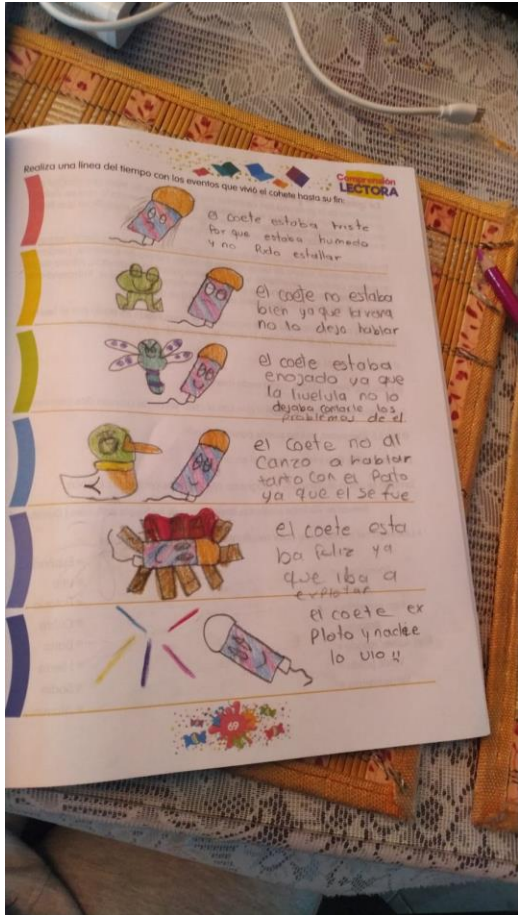 Realiza una línea del tiempo con los eventos que vivió el cohete hasta su fin:
Comprensión
LECTORA
el coete estaba triste
Por que estaba humedo
y no Pudo estallar
el coete no estaba
bien ya que la rana
no lo dejo hablar
el coete estaba
enojado ya que
la livelula no lo
dejaba contarle los
problemas de el
el coete no al
canzo a hablar
tanto con el Pato
ya que el se fue
el coete esta
ba feliz ya
que iba a
explotar
el coete ex
Ploto y nadie
lo vio !!
69